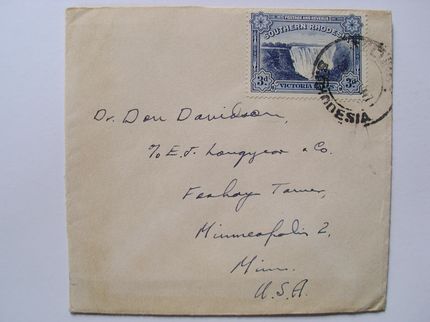 POSTAGE AND REVENUE
SOUTHERN RHODESIA
3d. 3d.
VICTORIA
RHODESIA
Dr. Don Davidson,
% E.J. Longyear & Co.
Foshay Tower,
Minneapolis 2,
Minn.
U.S.A.